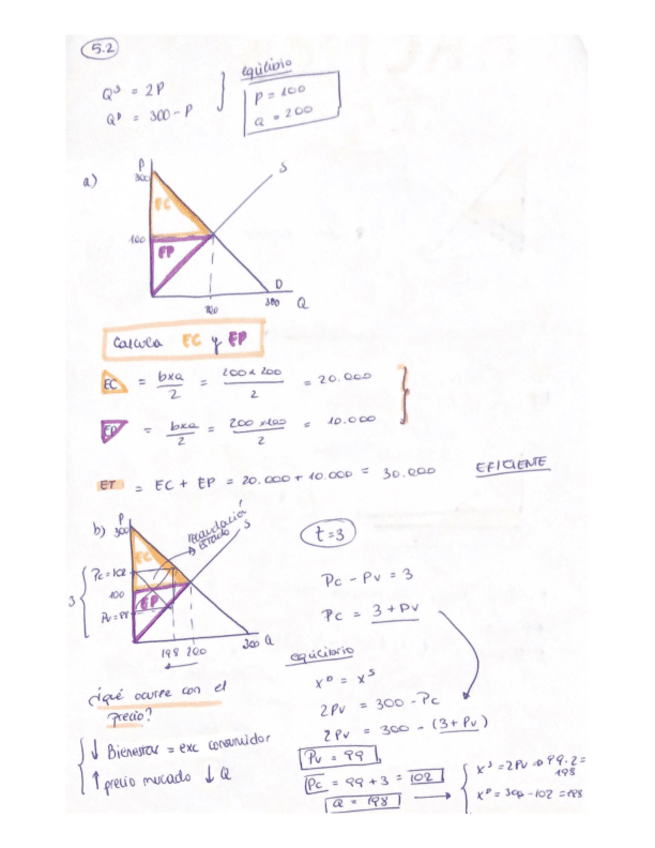 5.2
equilibrio
Qˢ = 2P
Qᴰ = 300 - P
P = 100
Q = 200
a)
P
300
S
EC
100
EP
D
200
300
Q
Calcula EC y EP
EC = bxa/2 = 200x200/2 = 20.000
EP = bxa/2 = 200x100/2 = 10.000
ET = EC + EP = 20.000 + 10.000 = 30.000 EFICIENTE
b)
P
300
recaudación
estado
S
EC
Pc = 102
3
100
EP
198 200
300 Q
t = 3
Pc - Pv = 3
Pc = 3 + Pv
equilibrio
xᴰ = xˢ
2Pv = 300 - Pc
2Pv = 300 - (3 + Pv)
Pv = 99
Pc = 99 + 3 = 102
Q = 198
xˢ = 2Pv → 99.2 =
198
xᴰ = 300 - 102 = 198
¿Qué ocurre con el
precio?
↓ Bienestar = exc consumidor
↑ precio mercado ↓ Q